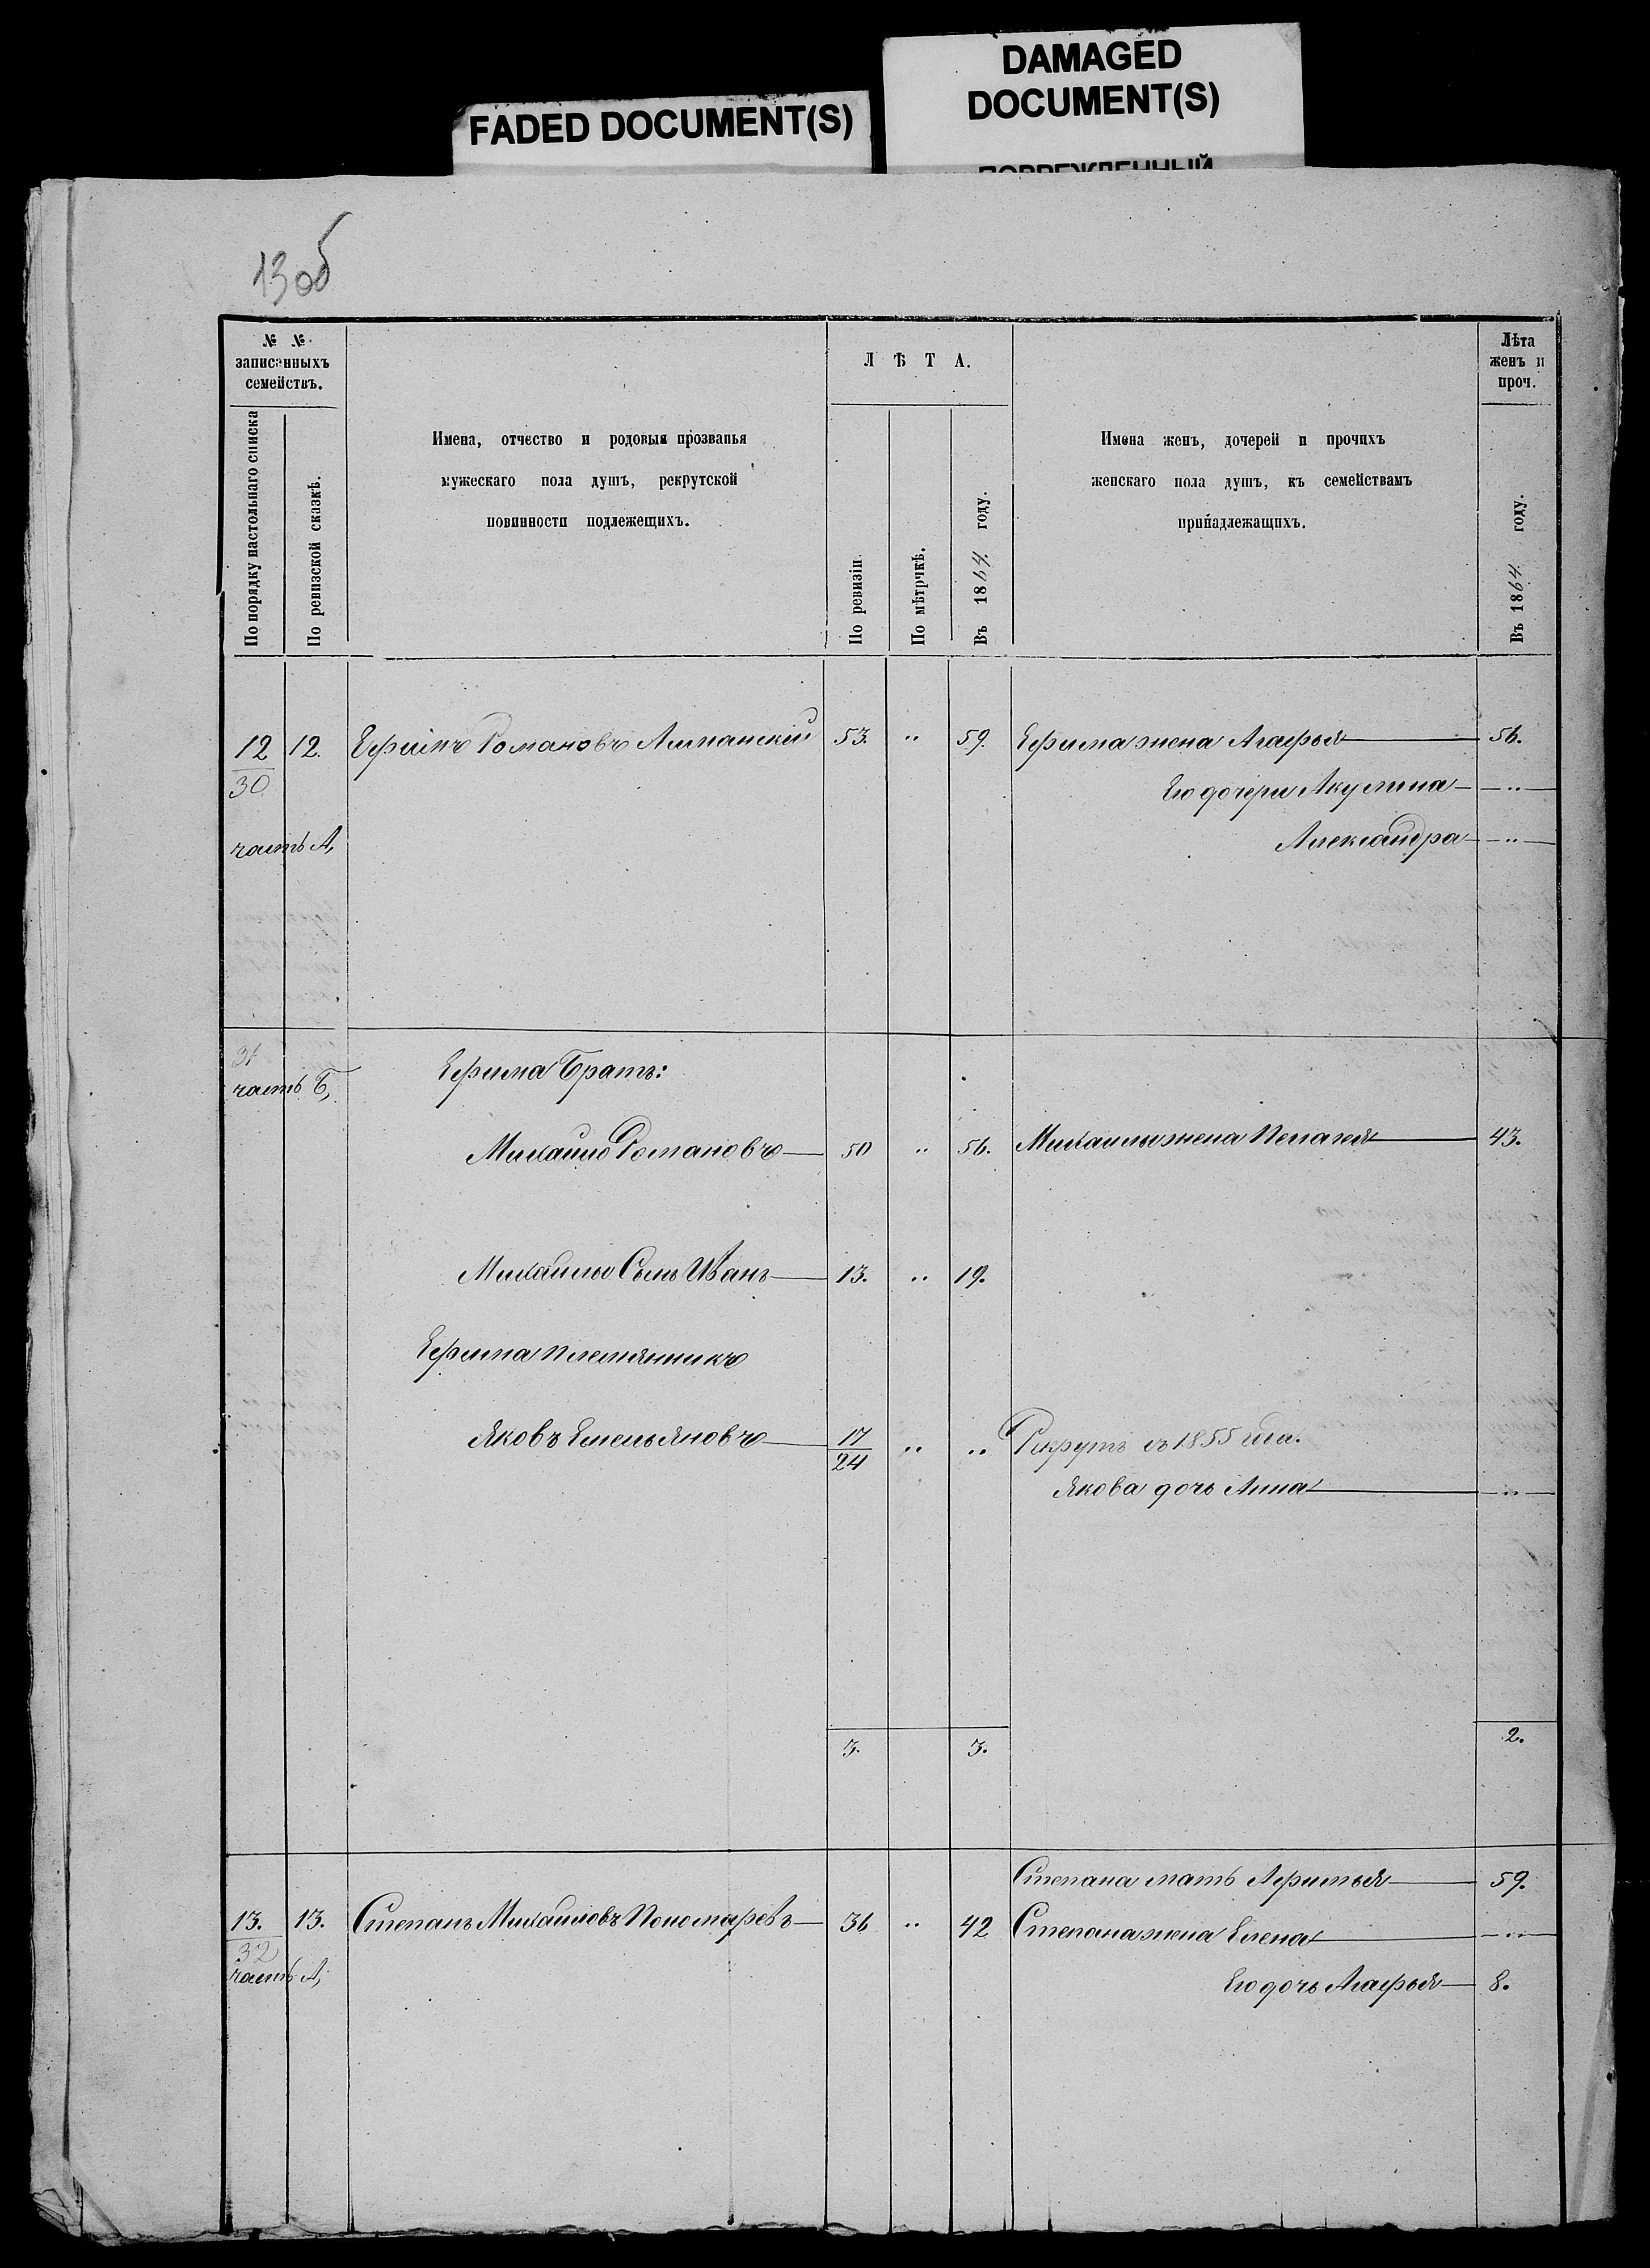 FADED DOCUMENT(S)
DAMAGED
DOCUMENT(S)
ПОВРЕЖДЕННЫЙ
13об
№ №
записанныхъ
семействъ.
По порядку настольнаго списка
По ревизской сказкѣ.
Имена, отчество и родовыя прозванья
мужескаго пола душъ, рекрутской
повинности подлежещихъ.
Л Ѣ Т А.
По ревизіи.
По мѣтрчкѣ.
Въ 1864. году.
Имена женъ, дочерей и прочихъ
женскаго пола душъ, къ семействамъ
принадлежащихъ.
Лѣта
женъ и
проч.
Въ 1864. году.
12 12. Ефимъ Романовъ 53. " 59. Ефима жена Агафья 56.
30 Его дочери Акулина "
часть А, Александра "
31
часть Б, Ефима Братъ:
Михайло Романовъ 50 " 56. Михайлы жена Пелагея 43.
Михайлы Сынъ Иванъ 13. " 19.
Ефима племянникъ
Яковъ Емельяновъ 17 " " Рекрутъ съ 1855 года.
24 Якова дочь Анна "
3. 3. 2.
Степана мать Афимья 59.
13. 13. Степанъ Михайловъ Пономаревъ 36 " 42 Степана жена Елена "
32
часть А, Его дочь Агафья 8.